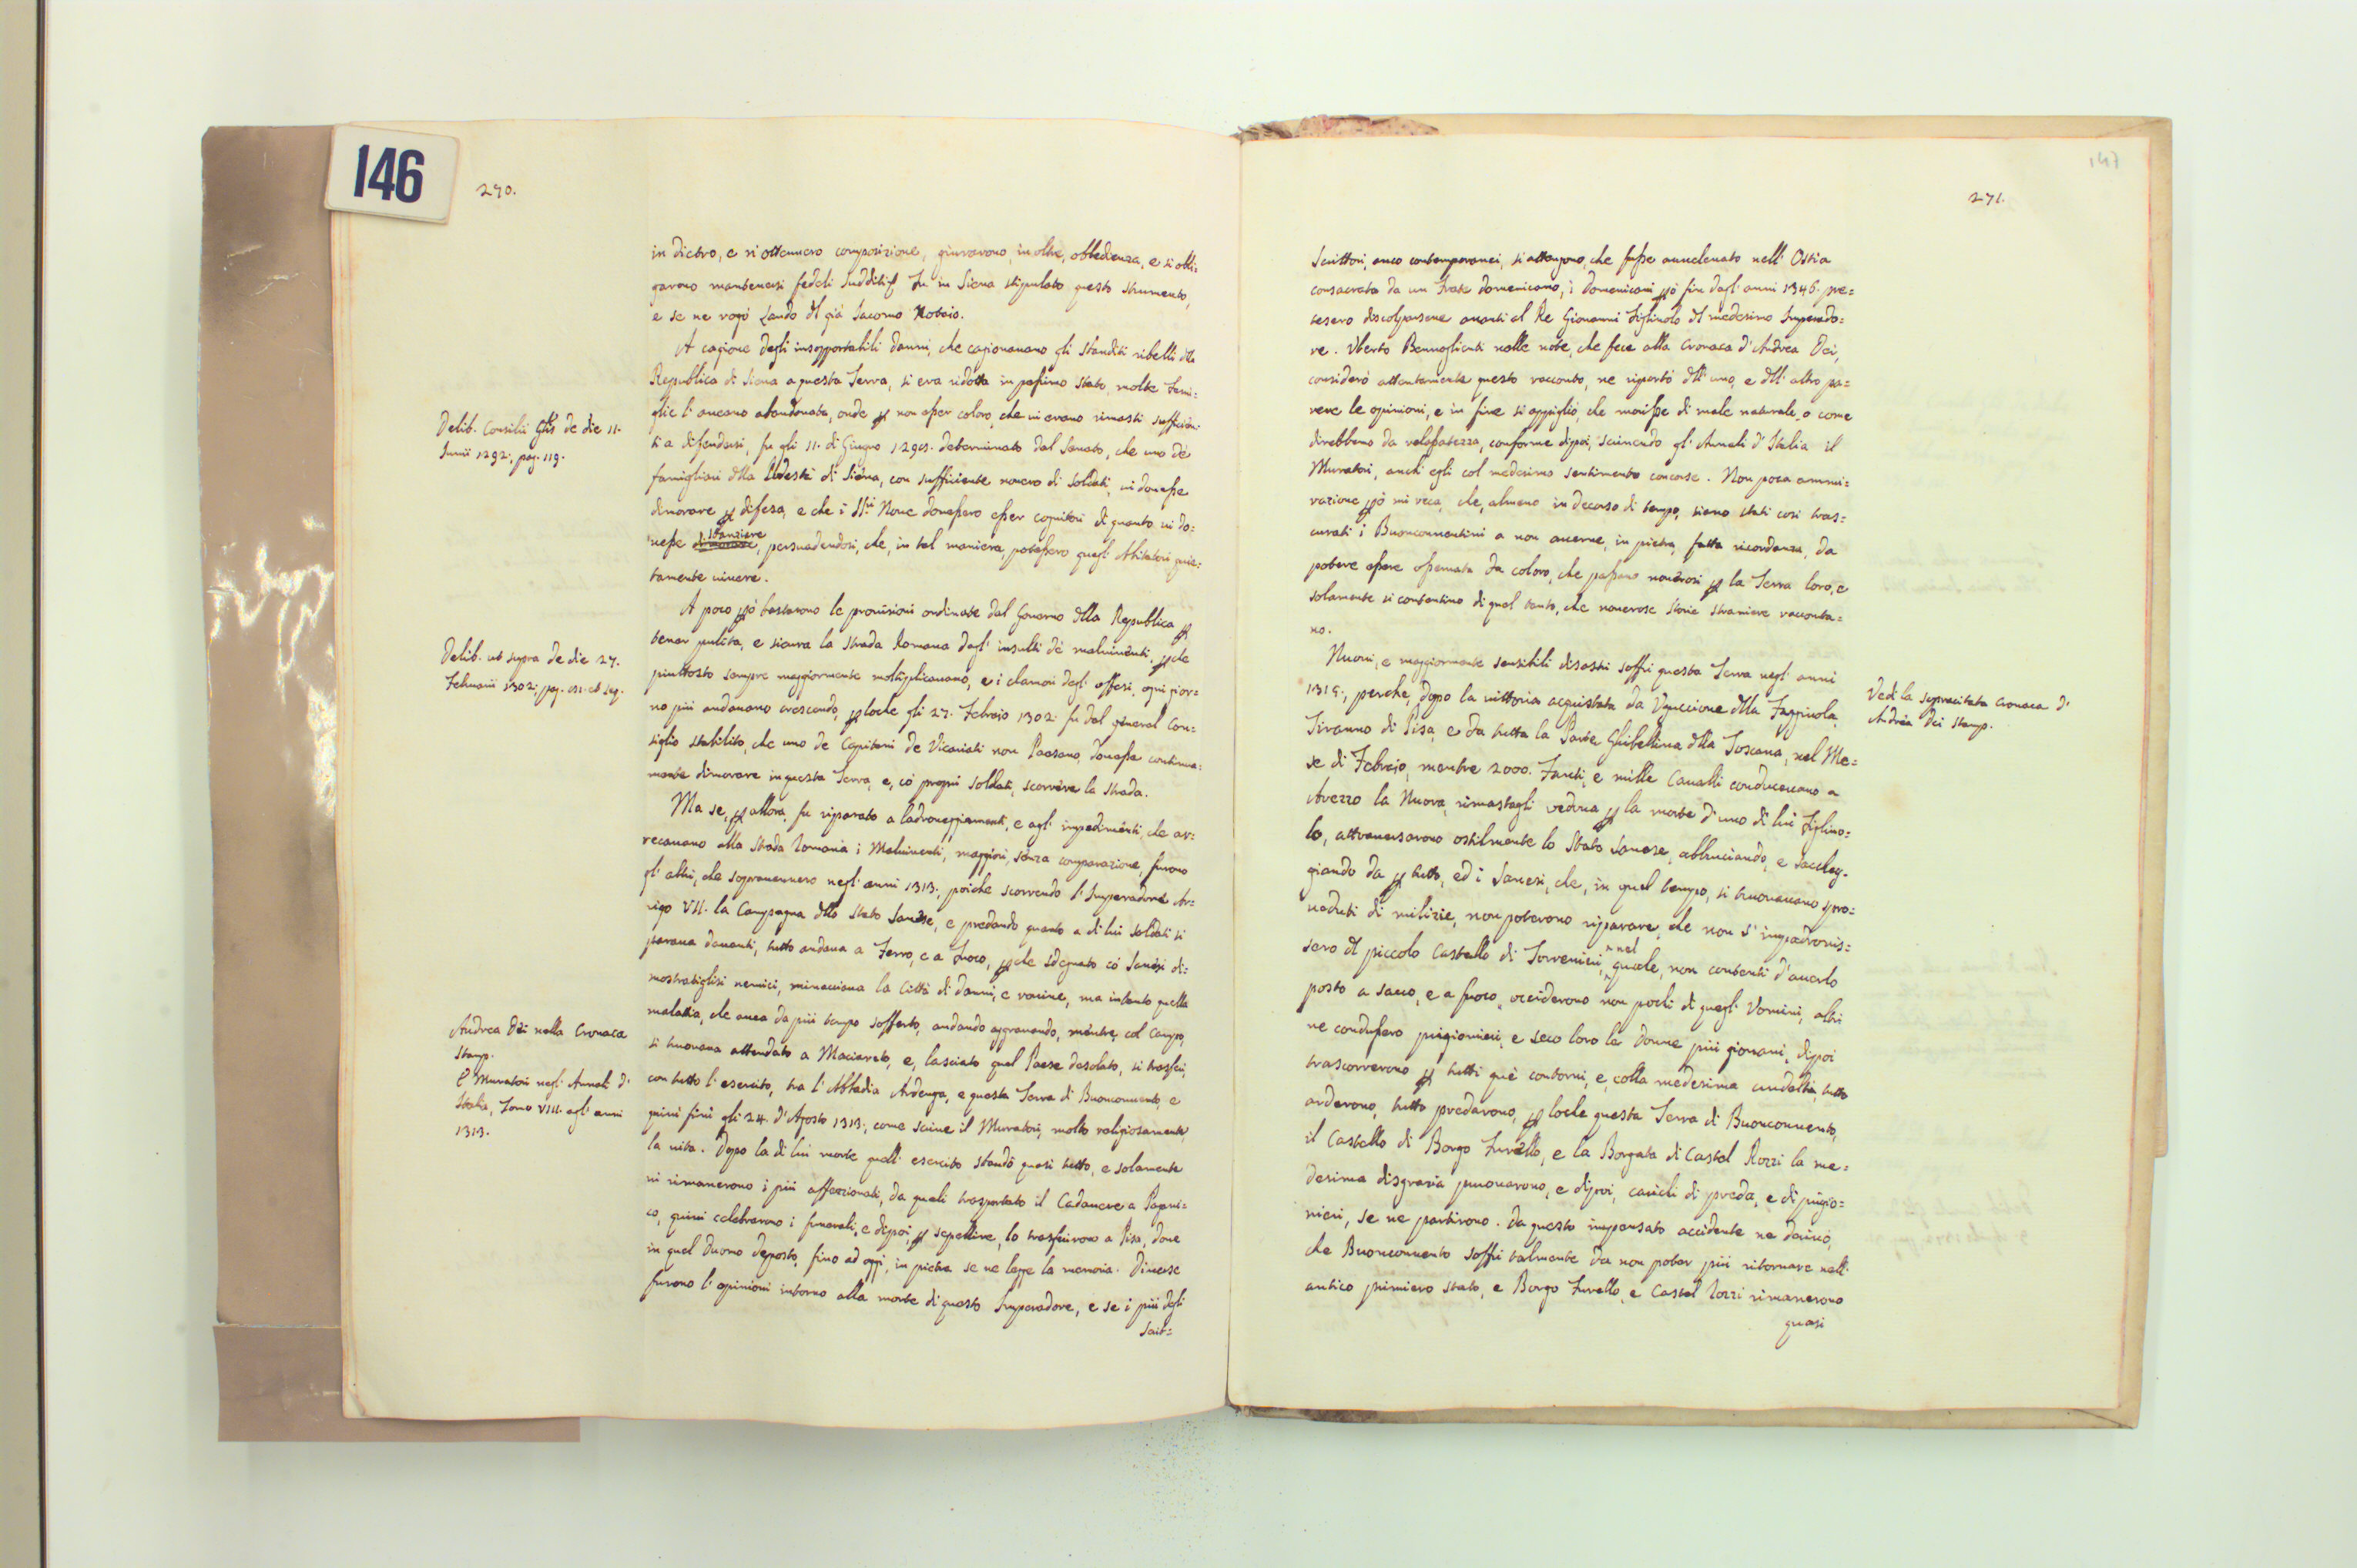 146
270.
in dietro, e ri ottennero composizione, giurarono, inoltre, obbedienza, e si obli=
garono mantenersi fedeli sudditi fu in Siena stipulato questo strumento,
e se ne rogò Lando dl già Iacomo Notaio.
A cagione degli insopportabili danni, che cagionavano gli sbanditi ribelli dlla
Republica di Siena a questa Terra, si era ridotta in pessimo stato, molte fami=
glie l'aveano abandonata, onde p non esser coloro, che vi erano rimasti sufficien=
ti a difendersi, fu gli 11. di Giugno 1292. determinato dal Senato, che uno de
famigliari dlla Udestà di Siena, con sufficiente novero di soldati, vi dovesse
dimorare p difesa, e che i SSri Nove dovessero esser cognitori di quanto vi do=
vesse stanziare, persuadendosi, che, in tal maniera, potessero quegl'Abitatori quie=
tamente vivere.
Delib. Consilii Glis de die 11.
Junii 1292., pag. 119.
A poco pò bastarono le provisioni ordinate dal Governo dlla Republica p
tener pulita, e sicura la strada Romana dagl'insulti de malviventi, pche
piuttosto sempre maggiormente moltiplicavano, e i clamori degl'offesi, ogni gior=
no più andavano crescendo, ploche gli 27. Febraio 1302. fu dal general Con=
siglio stabilito, che uno de Capitani de Vicariati non Paesano, dovesse continua=
mente dimorare in questa Terra, e, có propri soldati, scorrere la strada.
Delib. ut supra de die 27.
Februarii 1302., pag. 131. et seq.
Ma se, p allora, fu riparato a ladroneggiamenti, e agl'impedimenti, che ar=
recavano alla strada Romana i Malviventi, maggiori, senza comparazione, furono
gl'altri, che sopravennero negl'anni 1313., poiche scorrendo l'Imperadore Ar=
rigo VII. la Campagna dllo stato Sanese, e predando quanto a di lui soldati si
parava davanti, tutto andava a Ferro, e a Fuoco, pche sdegnato có Sanesi di=
mostratiglisi nemici, minacciava la Città di danni, e rovine, ma intanto quella
malattia, che avea da più tempo sofferto, andando aggravando, mentre, col Campo,
si trovava attendato a Maciareto, e, lasciato quel Paese desolato, si trasferì,
con tutto l'esercito, tra l'Abbadia Ardenga, e questa Terra di Buonconvento, e
quivi finì gli 24. d'Agosto 1313., come scrive il Muratori, molto religiosamente,
la vita. Dopo la di lui morte quell'esercito sbandò quasi tutto, e solamente
vi rimanerono i più affezionati, da quali trasportato il Cadavere a Pagani=
co, quivi celebrarono i funerali, e dipoi, p sepellire, lo trasferirono a Pisa, dove
in quel Duomo deposto, fino ad oggi, in pietra se ne legge la memoria. Diverse
furono l'opinioni intorno alla morte di questo Imperadore, e se i più degli
Scrit=
Andrea Dei nella Cronaca
stamp.
E Muratori negl'Annali d'
Italia, Tomo VIII. agl'anni
1313.
147
271.
Scrittori, anco contemporanei, si attengono, che fusse avvelenato nell'Ostia
consacrata da un Frate domenicano, i domenicani pò fin dagl'anni 1346. pre=
tesero discolparsene avanti al Re Giovanni figliuolo dl medesimo Imperado=
re. Uberto Benvoglienti nelle note, che fece alla Cronaca d'Andrea Dei,
considerò attentamente questo racconto, ne riportò dll'uno, e dll'altro pa=
rere le opinioni, e in fine si appigliò, che morisse di male naturale, o come
direbbono da            conforme dipoi, scrivendo gl'Annali d'Italia il
Muratori, anch'egli col medesimo sentimento concorse. Non poca ammi=
razione pò mi reca, che, almeno in decorso di tempo, siano stati così tras=
curati i Buonconventini a non averne, in pietra, fatta ricordanza, da
potere essere osservata da coloro, che passano noverosi p la Terra loro, e
solamente si contentino di quel tanto, che noverose storie straniere racconta=
no.
Nuovi, e maggiormente sensibili disastri soffrì questa Terra negl'anni
1315., perche, dopo la vittoria acquistata da Uguccione dlla Faggiuola,
Tiranno di Pisa, e da tutta la Parte Ghibellina dlla Toscana, nel Me=
se di Febraio, mentre 2000. Fanti, e mille Cavalli conducevano a
Arezzo la Nuora, rimastagli vedova p la morte d'uno di lui figliuo=
lo, attraversarono ostilmente lo stato Sanese, abbruciando, e saccheg=
giando da p tutto, ed i Sanesi, che, in quel tempo, si trovavano spro=
veduti di milizie, non poterono riparare, che non s'impadronis=
sero dl piccolo Castello di Torrenieri, nel quale, non contenti d'averlo
posto a sacco, e a fuoco, occiderono non pochi di quegl'Uomini, altri
ne condussero prigionieri, e seco loro le donne più giovani, dipoi
trascorrerono p tutti què contorni, e, colla medesima crudeltà, tutto
arderono, tutto predarono, ploche questa Terra di Buonconvento,
il Castello di Borgo Furello, e la Borgata di Castel Rozzi la me=
desima disgrazia provarono, e dipoi, carichi di preda, e di prigio=
nieri, se ne partirono. Da questo impensato accidente ne derivò,
che Buonconvento soffrì talmente da non poter più ritornare nell'
antico primiero stato, e Borgo Furello, e Castel Rozzi rimanerono
quasi
Vedi la sopracitata Cronaca d'
Andrea Dei stamp.